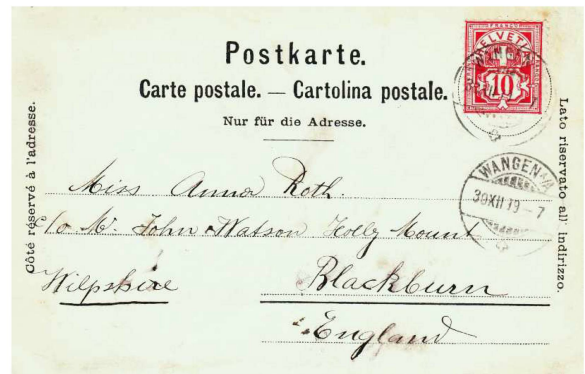 Postkarte.
Carte postale. — Cartolina postale.
Nur für die Adresse.
FRANCO
HELVETIA
10
WANGEN
Côté réservé à l'adresse.
Lato riservato all' indirizzo.
WANGEN
30 XII 99 - 7
Miss Anna Roth.
c/o Mr. John Watson Holly Mount
Wilpshire Blackburn
England